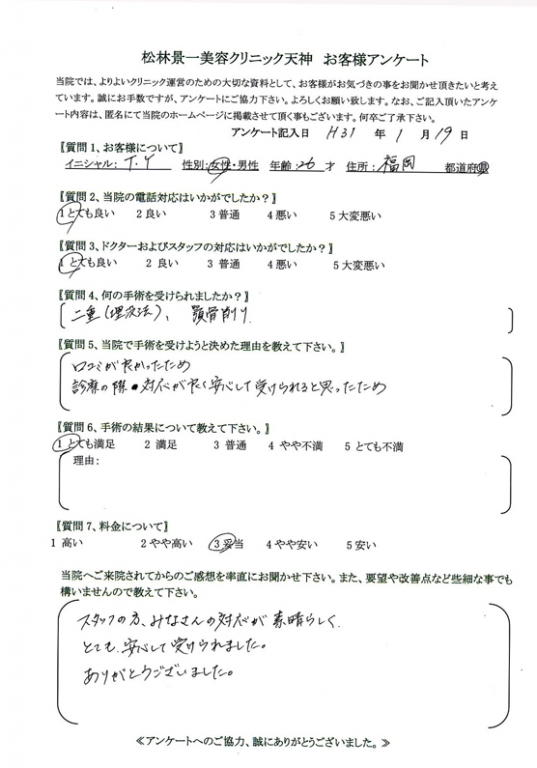 松林景一美容クリニック天神　お客様アンケート
当院では、よりよいクリニック運営のための大切な資料として、お客様がお気づきの事をお聞かせ頂きたいと考え
ています。誠にお手数ですが、アンケートにご協力下さい。よろしくお願い致します。なお、ご記入頂いたアンケ
ート内容は、匿名にて当院のホームページに掲載させて頂く事もございます。何卒ご了承下さい。
アンケート記入日　H31　年　1　月　19　日
【質問1、お客様について】
イニシャル：T.Y　性別：女性・男性　年齢：26　才　住所：福岡　都道府県
【質問2、当院の電話対応はいかがでしたか？】
1 とても良い　2 良い　3 普通　4 悪い　5 大変悪い
【質問3、ドクターおよびスタッフの対応はいかがでしたか？】
1 とても良い　2 良い　3 普通　4 悪い　5 大変悪い
【質問4、何の手術を受けられましたか？】
二重(埋没法)、顎骨削り
【質問5、当院で手術を受けようと決めた理由を教えて下さい。】
口コミが良かったため
診療の際　対応が良く安心して受けられると思ったため
【質問6、手術の結果について教えて下さい。】
1 とても満足　2 満足　3 普通　4 やや不満　5 とても不満
理由：
【質問7、料金について】
1 高い　2 やや高い　3 妥当　4 やや安い　5 安い
当院へご来院されてからのご感想を率直にお聞かせ下さい。また、要望や改善点など些細な事でも
構いませんので教えて下さい。
スタッフの方、みなさんの対応が素晴らしく、
とても安心して受けられました。
ありがとうございました。
≪アンケートへのご協力、誠にありがとうございました。≫